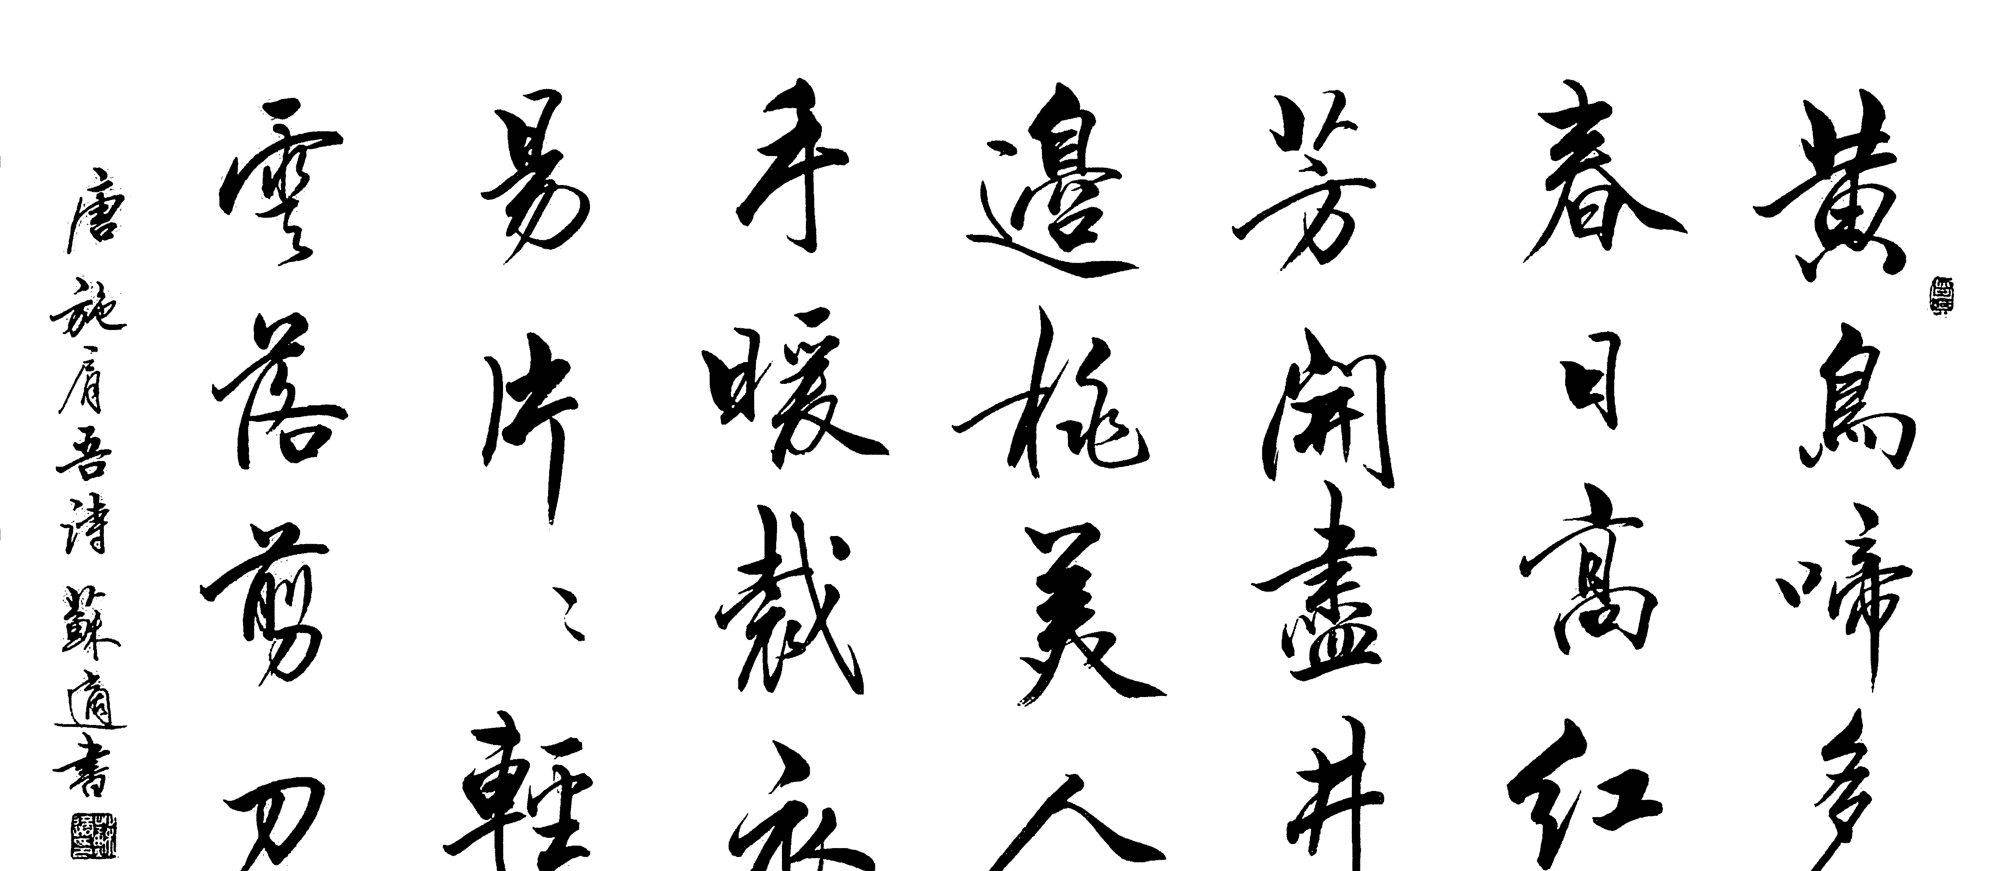 黄鳥啼多
春日高红
芳開盡井
邊桃美人
手暖裁衣
易片片輕
雲落剪刀
唐施肩吾詩蘇適書